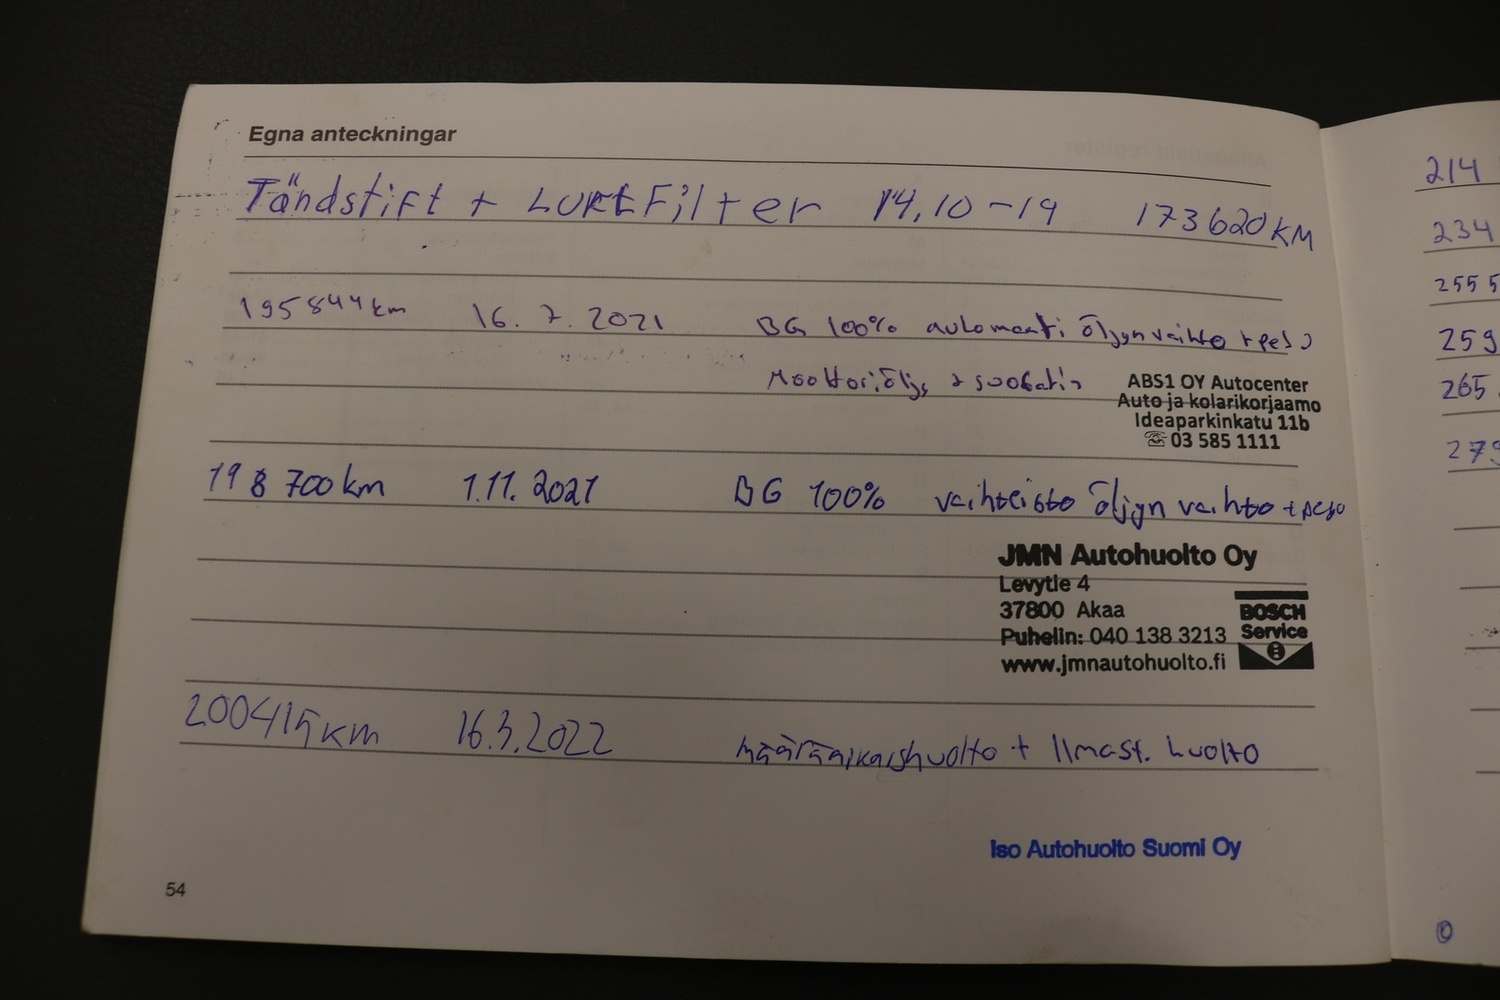 Egna anteckningar
Tändstift + Luktfilter 14.10-19 173620 KM
195844 km 16. 7. 2021 BG 100% automaati öljyn vaihto + pesu
Moottoriöljy + suodatin
ABS1 OY Autocenter
Auto ja kolarikorjaamo
Ideaparkinkatu 11b
☏ 03 585 1111
198 700 km 1.11. 2021 BG 100% vaihteisto öljyn vaihto + pesu
JMN Autohuolto Oy
Levytie 4
37800 Akaa
Puhelin: 040 138 3213
www.jmnautohuolto.fi
BOSCH
Service
200415 km 16.3.2022 Määräaikaishuolto + Ilmast. huolto
Iso Autohuolto Suomi Oy
54
214
234
255 5
259
265
279